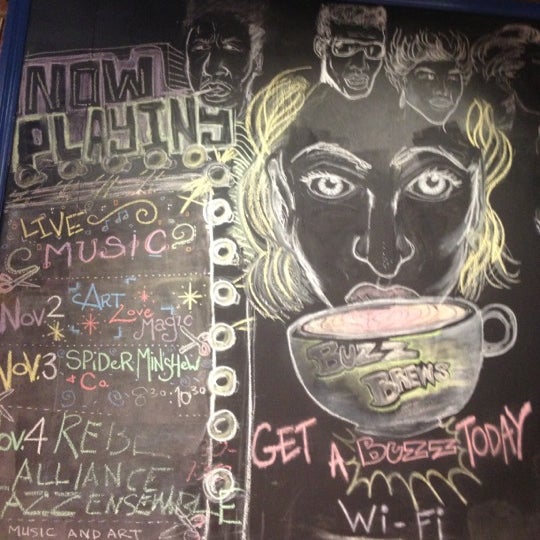 NOW
PLAYING
LIVE
MUSIC
NOV 2 ART Love Magic
NOV.3 SPiDER MiNSHEW
+ Co. 8:30-10:30
OV.4 REBEL
ALLIANCE
JAZZ ENSEMBLE
MUSIC AND ART
BUZZ
BREWS
GET A BUZZ TODAY
Wi-Fi